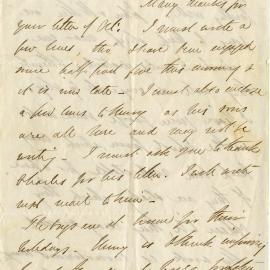 Many thanks for
your letter of Oct. I must write a
few lines, tho' I have been
since half past five this morning &
it is now late - I must also enclose
a few lines to Henry as his sons
are all here and may not be
writing - I must ask you to thank
Charles for his letter. I will write
next mail to him -
The boys are at home for their
holidays. Henry is I think